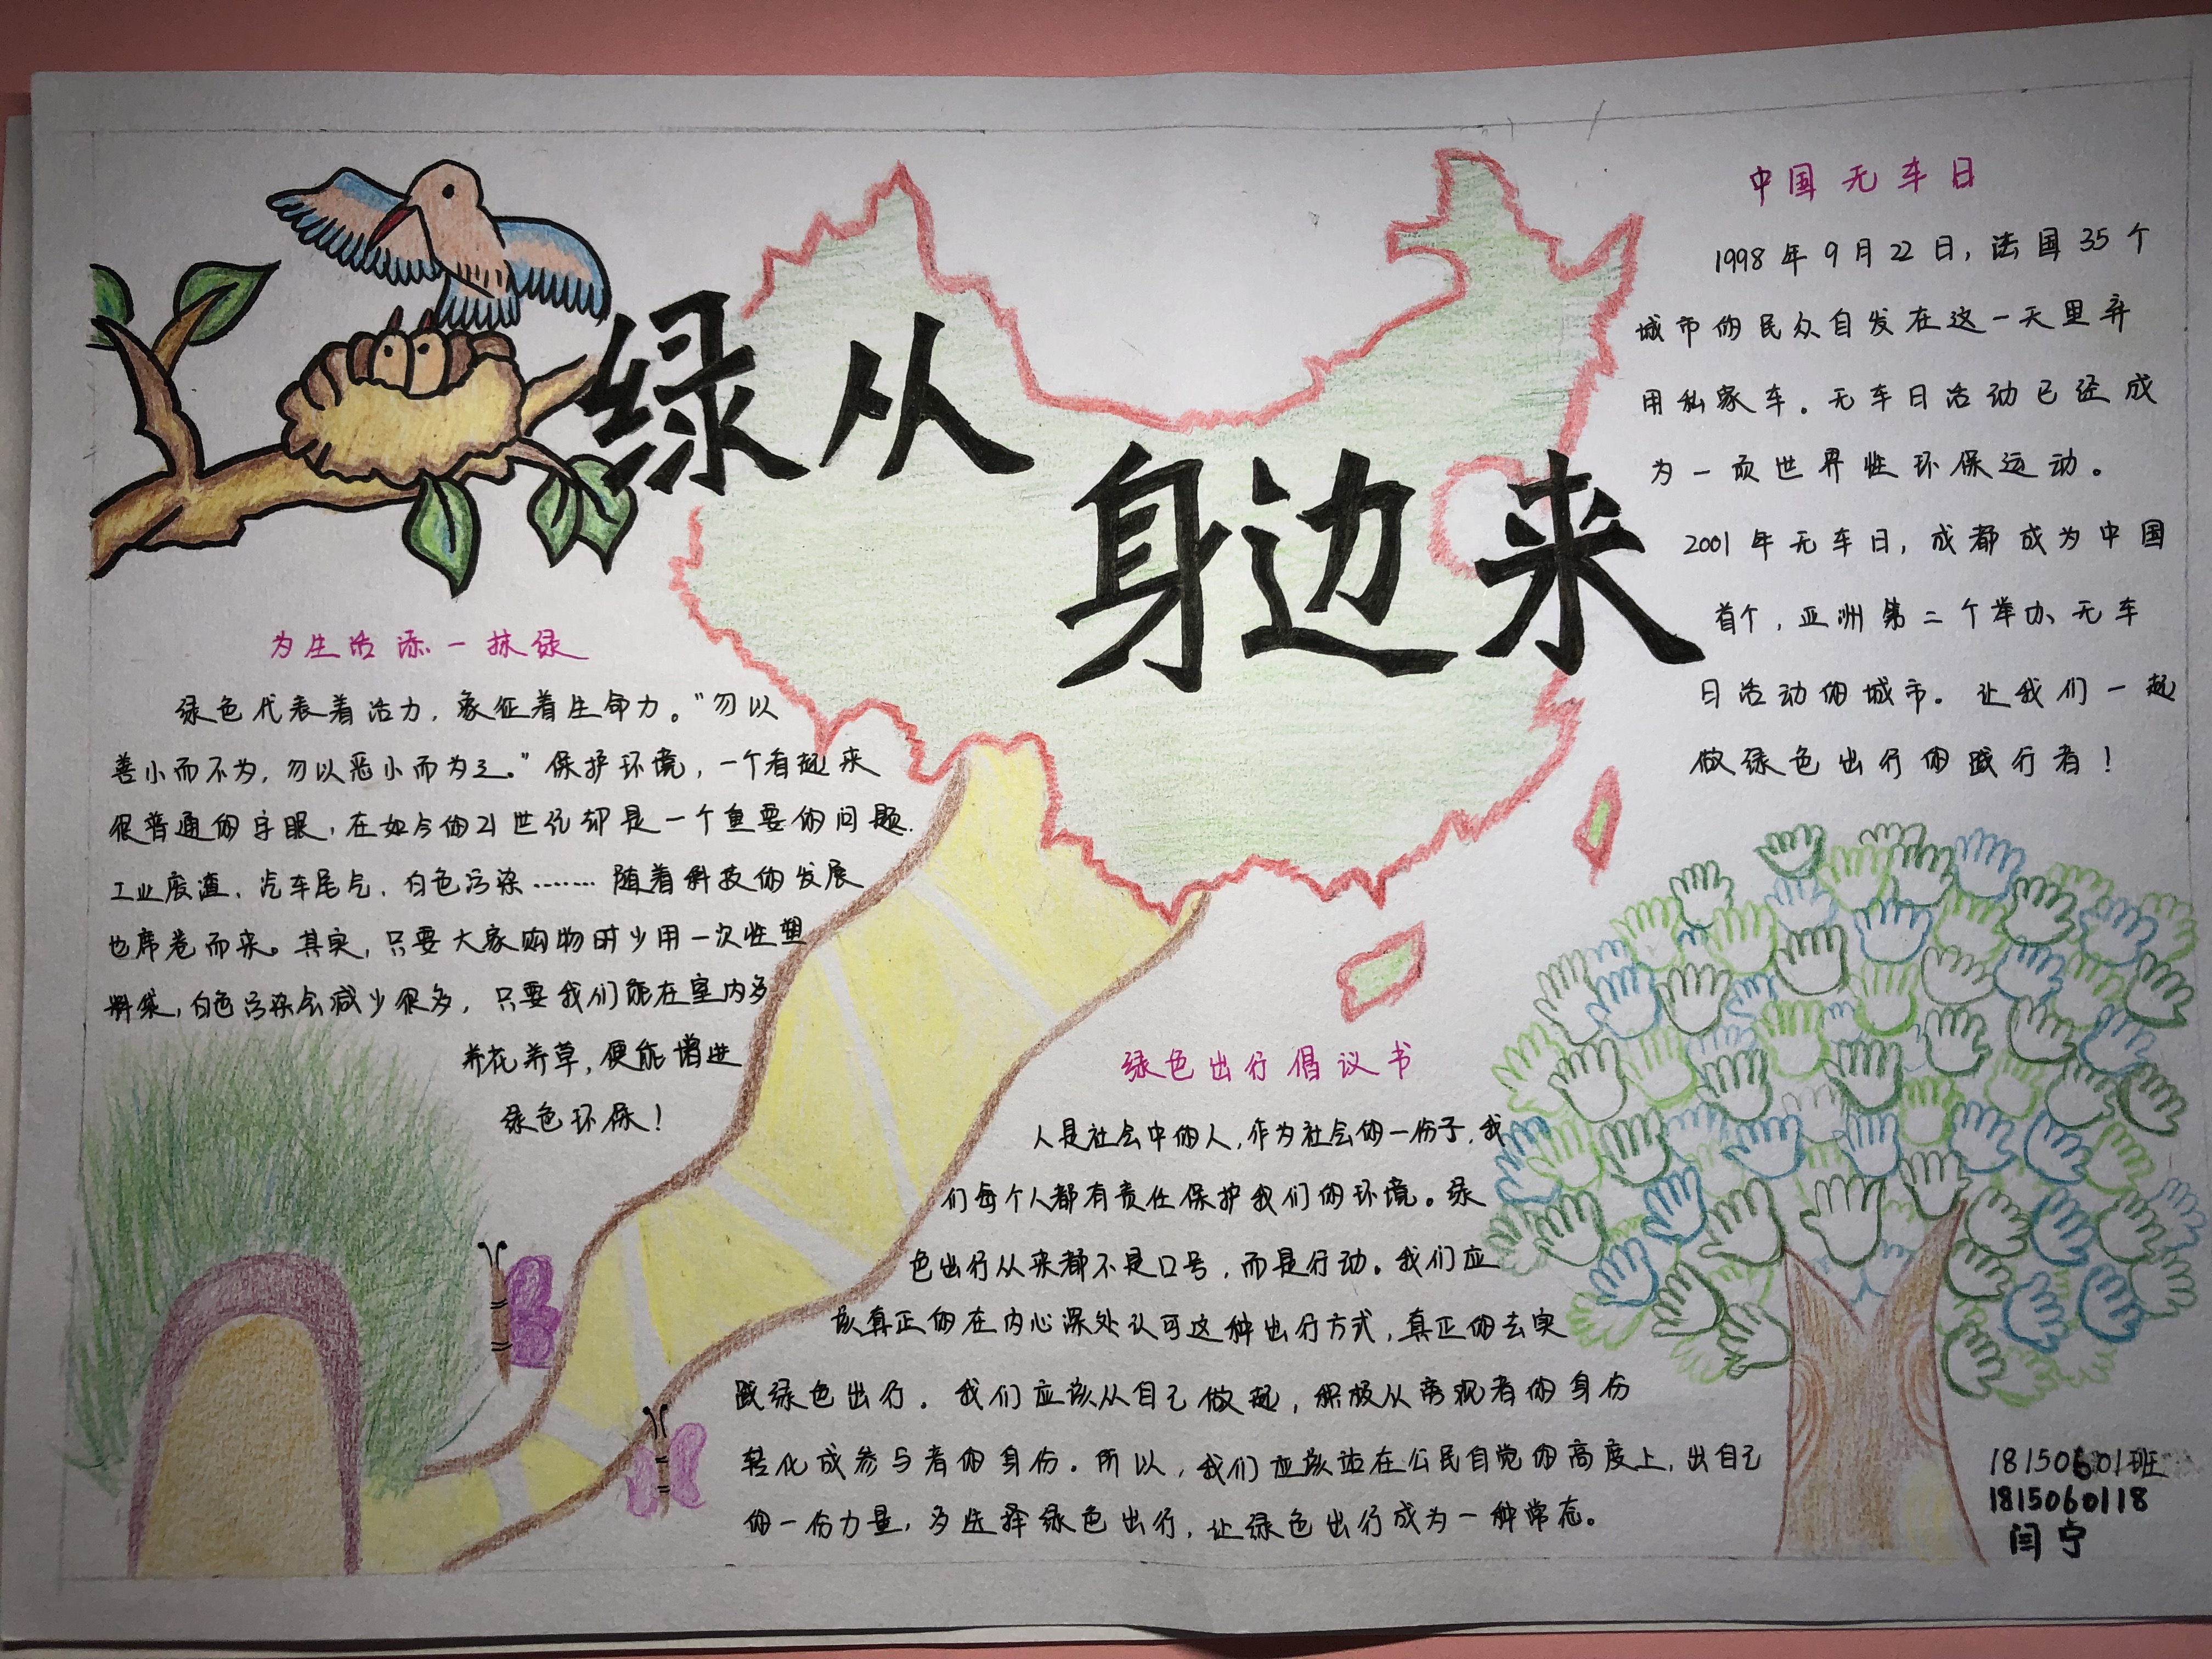 绿从
身边来
为生活添一抹绿
绿色代表着活力，象征着生命力。"勿以
善小而不为，勿以恶小而为之。"保护环境，一个看起来
很普通的字眼，在如今的21世纪却是一个重要的问题.
工业废渣、汽车尾气、白色污染……随着科技的发展
也席卷而来。其实，只要大家购物时少用一次性塑
料袋，白色污染会减少很多，只要我们能在室内多
养花养草，便能增进
绿色环保！
中国无车日
1998年9月22日，法国35个
城市的民众自发在这一天里弃
用私家车。无车日活动已经成
为一项世界性环保运动。
2001年无车日，成都成为中国
首个，亚洲第二个举办无车
日活动的城市。让我们一起
做绿色出行的践行者！
绿色出行倡议书
人是社会中的人，作为社会的一份子，我
们每个人都有责任保护我们的环境。绿
色出行从来都不是口号，而是行动。我们应
该真正的在内心深处认可这种出行方式，真正的去实
践绿色出行。我们应该从自己做起，积极从旁观者的身份
转化成参与者的身份。所以，我们应该站在公民自觉的高度上，出自己
的一份力量，多选择绿色出行，让绿色出行成为一种常态。
18150601班
1815060118
闫宁